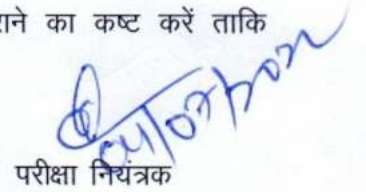 का कष्ट करें ताकि
परीक्षा नियंत्रक